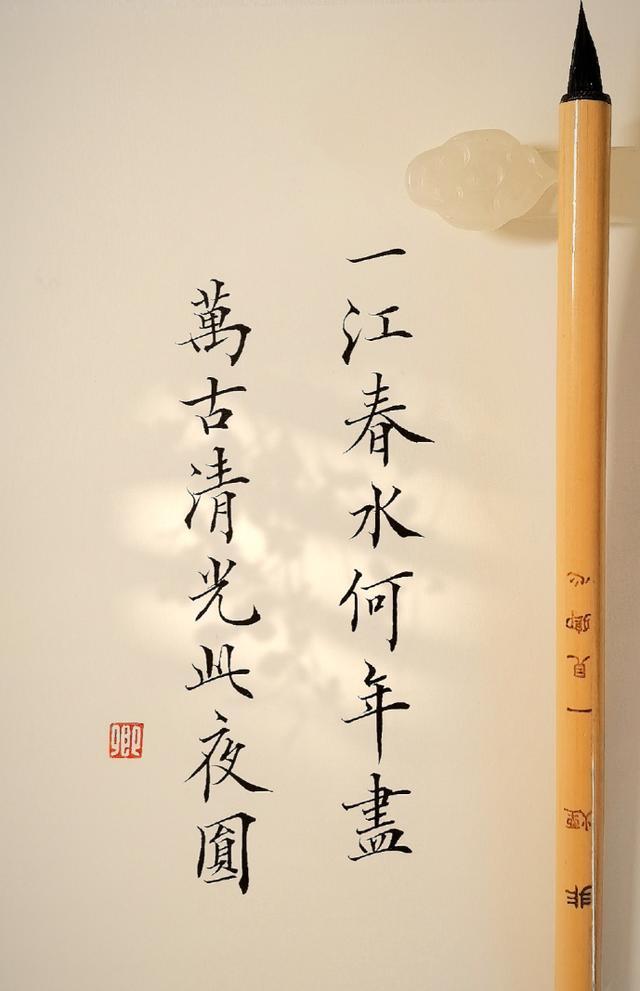 一江春水何年盡
萬古清光此夜圓
卿
一見卿心
非煙